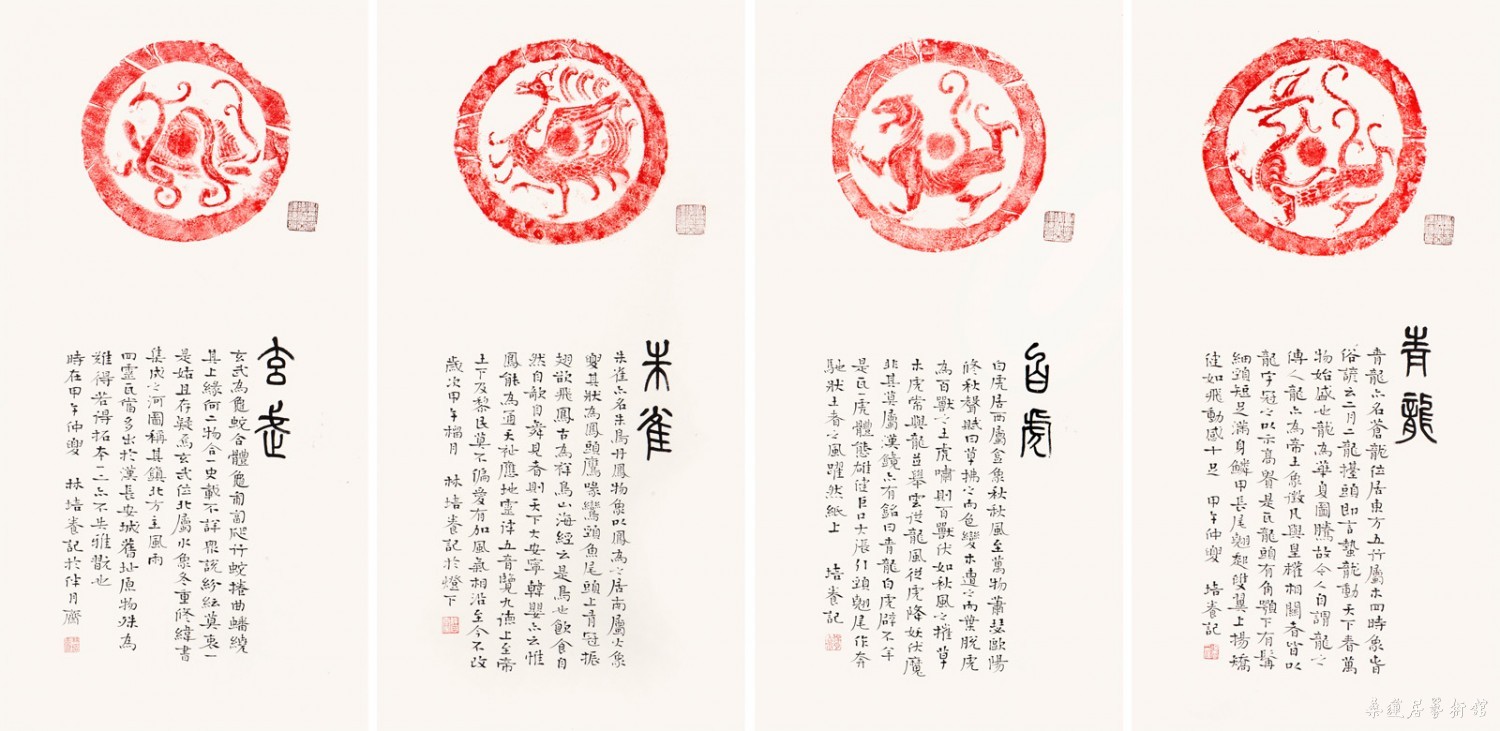 青龍
青龍亦名蒼龍位居東方五行屬木四時象旹
俗諺云二月二龍擡頭即言蟄龍動天下春萬
物始盛也龍為華夏圖騰故令人自謂龍之
傳人龍亦為帝王象徵凡與皇權相關者皆以
龍字冠之以示高譽是瓦龍頭有角顎下有髯
細頸短足滿身鱗甲長尾翹起雙翼上揚矯
健如飛動感十足 甲午仲夏 培養記
白虎
白虎居西屬金象秋秋風至萬物蕭瑟歐陽
修秋聲賦曰草拂之而色變木遭之而葉脫虎
為百獸之王虎嘯則百獸伏如秋風之摧草
木虎常與龍並舉雲從龍風從虎降妖伏魔
非其莫屬漢鏡亦有銘曰青龍白虎辟不羊
是瓦一虎體態雄健巨口大張引頸翹尾作奔
馳狀王者之風躍然紙上 培養記
朱雀
朱雀亦名朱鳥丹鳳物象以鳳為之居南屬火象
夏其狀為鳳頭鷹喙鸞頸魚尾頭上有冠振
翅欲飛鳳古為祥鳥山海經云是鳥也飲食自
然自歌自舞見者則天下大安寧韓嬰亦云惟
鳳能為通天祉應地靈律五音覽九德上至帝
王下及黎民莫不偏愛有加風氣相沿至今不改
歲次甲午榴月 林培養記於燈下
玄武
玄武為龜蛇合體龜匍匐爬行蛇捲曲蟠繞
其上緣何二物合一史載不詳眾說紛紜莫衷一
是姑且存疑焉玄武位北屬水象冬重修緯書
集成之河圖稱其鎮北方主風雨
四靈瓦當多出於漢長安城舊址原物殊為
難得若得拓本一二亦不失雅翫也
時在甲午仲夏 林培養記於伴月齋
桑蓮居藝術館